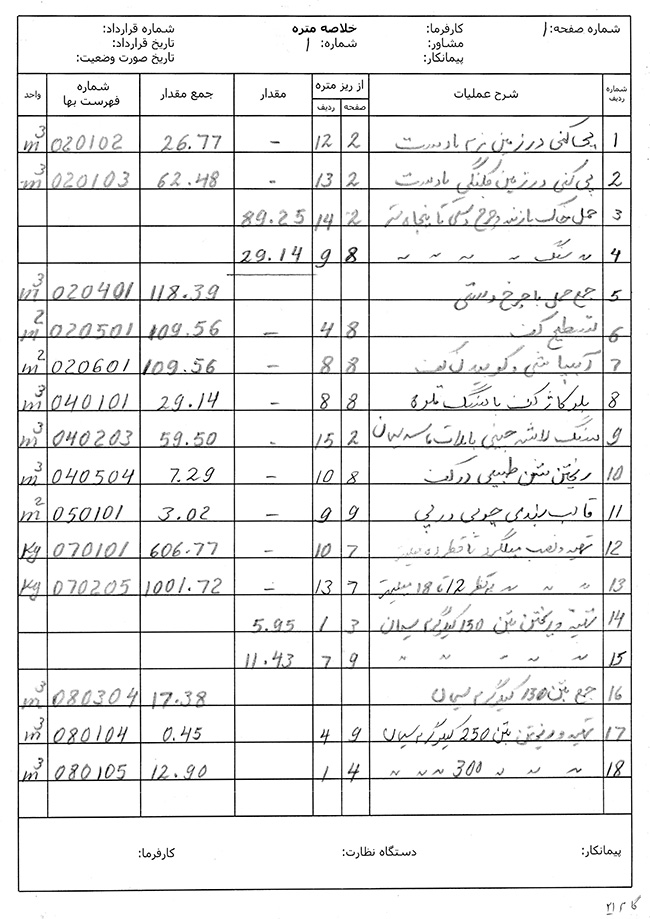 شماره صفحه: ۱ کارفرما: خلاصه متره شماره قرارداد:
مشاور: شماره: ۱ تاریخ قرارداد:
پیمانکار: تاریخ صورت وضعیت:
شماره ردیف شرح عملیات از ریز متره صفحه ردیف مقدار جمع مقدار شماره فهرست بها واحد
1 پی کنی در زمین نرم با دست 2 12 - 26.77 020102 m3
2 پی کنی در زمین کلنگی با دست 2 13 - 62.48 020103 m3
3 حمل خاک مازاد با چرخ دستی تا پنجاه متر 2 14 89.25
4 〃 سنگ 〃 〃 〃 〃 8 9 29.14
5 جمع حمل با چرخ دستی 118.39 020401 m3
6 تسطیح کف 8 4 - 109.56 020501 m2
7 آبپاشی و کوبیدن کف 8 8 - 109.56 020601 m2
8 بلوکاژ کف با سنگ قلوه 8 8 - 29.14 040101 m3
9 سنگ لاشه چینی با ملات ماسه سیمان 2 15 - 59.50 040203 m3
10 ریختن شن طبیعی در کف 8 10 - 7.29 040504 m3
11 قالب بندی چوبی در پی 9 9 - 3.02 050101 m2
12 تهیه و نصب میلگرد تا قطر ده میلیمتر 7 10 - 606.77 070101 Kg
13 〃 〃 〃 به قطر 12 تا 18 میلیمتر 7 13 - 1001.72 070205 Kg
14 تهیه و ریختن بتن 150 کیلوگرم سیمان 3 1 5.95
15 〃 〃 〃 〃 〃 9 7 11.43
16 جمع بتن 150 کیلوگرم سیمان 17.38 080304 m3
17 تهیه و ریختن بتن 250 کیلوگرم سیمان 9 4 0.45 080104 m3
18 〃 〃 〃 300 〃 〃 〃 4 1 12.90 080105 m3
پیمانکار: دستگاه نظارت: کارفرما: